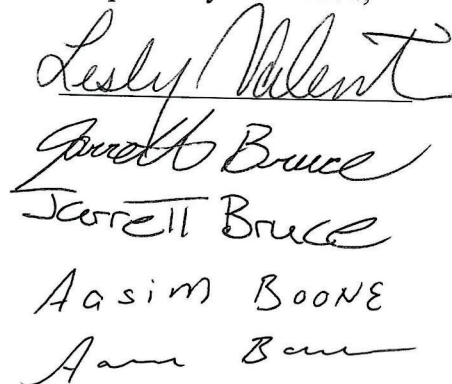 Lesly Valent
Jarrett Bruce
Jarrett Bruce
Aasim BOONE